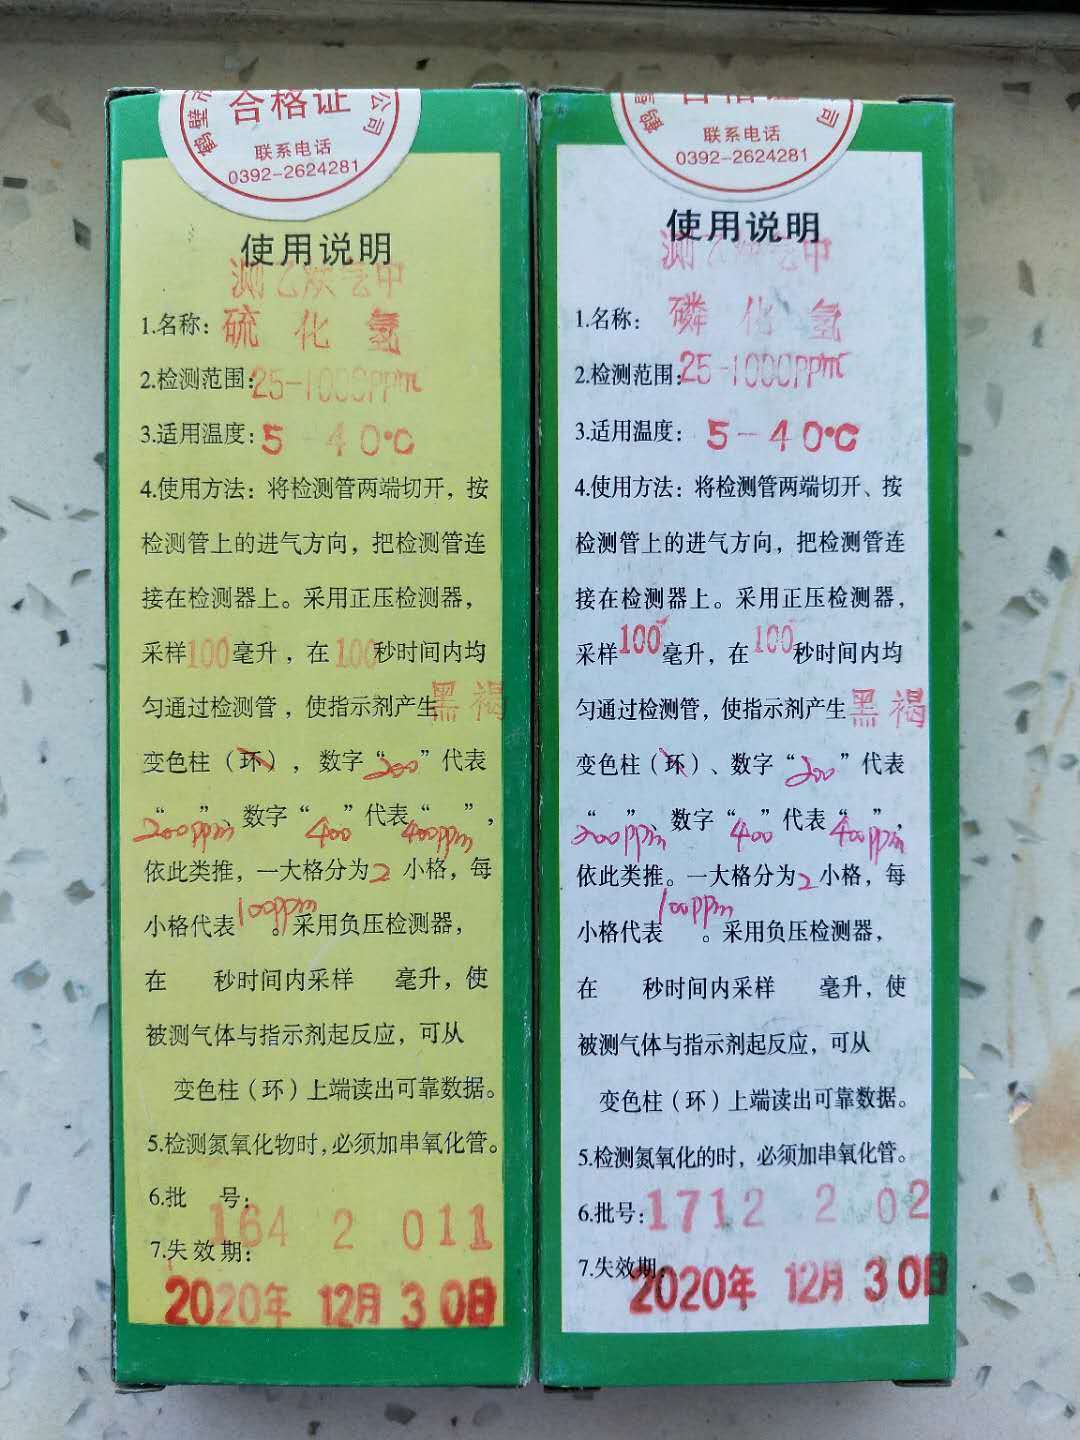 鹤壁市
公司
合格证
联系电话
0392-2624281
使用说明
测乙炔气中
1.名称：硫化氢
2.检测范围：25-1000PPm
3.适用温度：5-40℃
4.使用方法：将检测管两端切开，按
检测管上的进气方向，把检测管连
接在检测器上。采用正压检测器，
采样100毫升，在100秒时间内均
匀通过检测管，使指示剂产生黑褐
变色柱（环），数字“200”代表
“200ppm”、数字“400”代表“400ppm”，
依此类推，一大格分为2小格，每
小格代表100ppm。采用负压检测器，
在 秒时间内采样 毫升，使
被测气体与指示剂起反应，可从
变色柱（环）上端读出可靠数据。
5.检测氮氧化物时，必须加串氧化管。
6.批 号：164 2 011
7.失效期：
2020年 12月 30日
鹤壁
公司
合格证
联系电话
0392-2624281
使用说明
测乙炔气中
1.名称：磷化氢
2.检测范围：25-1000PPm
3.适用温度：5-40℃
4.使用方法：将检测管两端切开、按
检测管上的进气方向，把检测管连
接在检测器上。采用正压检测器，
采样100毫升，在100秒时间内均
匀通过检测管，使指示剂产生黑褐
变色柱（环）、数字“200”代表
“200ppm”、数字“400”代表“400ppm”，
依此类推。一大格分为2小格，每
小格代表100ppm。采用负压检测器，
在 秒时间内采样 毫升，使
被测气体与指示剂起反应，可从
变色柱（环）上端读出可靠数据。
5.检测氮氧化的时，必须加串氧化管。
6.批号：1712 2 02
7.失效期：
2020年 12月 30日